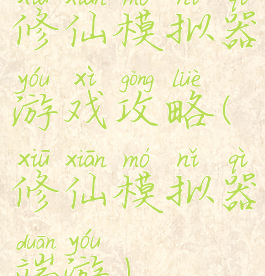 xiū xiān mó nǐ qì
修仙模拟器
yóu xì gōng lüè
游戏攻略(
xiū xiān mó nǐ qì
修仙模拟器
duān yóu
端游)